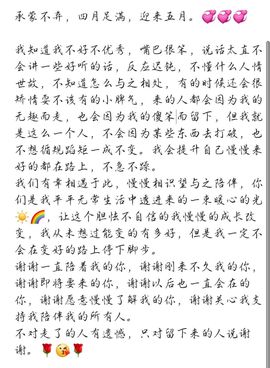 承蒙不弃，四月足满，迎来五月。💞💞💞
我知道我不好不优秀，嘴巴很笨，说话太直不
会讲一些好听的话，反应迟钝，不懂什么人情
世故，不知道怎么与之相处，有的时候还会很
矫情耍不该有的小脾气，来的人都会因为我的
无趣而走，也会因为我的傻笨而留下，但我就
是这么一个人，不会因为某些东西去打破，也
不想循规蹈矩一成不变。我会提升自己慢慢来
好的都在路上，不急不躁。
我们有幸相遇于此，慢慢相识望与之陪伴，你
们是我平平无常生活中透进来的一束暖心的光
☀️🌈，让这个胆怯不自信的我慢慢的成长改
变，我从未想过能变的有多好，但是我一定不
会在变好的路上停下脚步。
谢谢一直陪着我的你，谢谢刚来不久我的你，
谢谢即将要来的你，谢谢以后也一直会在的
你，谢谢愿意慢慢了解我的你，谢谢关心我支
持我陪伴我的所有人。
不对走了的人有遗憾，只对留下来的人说谢
谢。🌹😘🌹